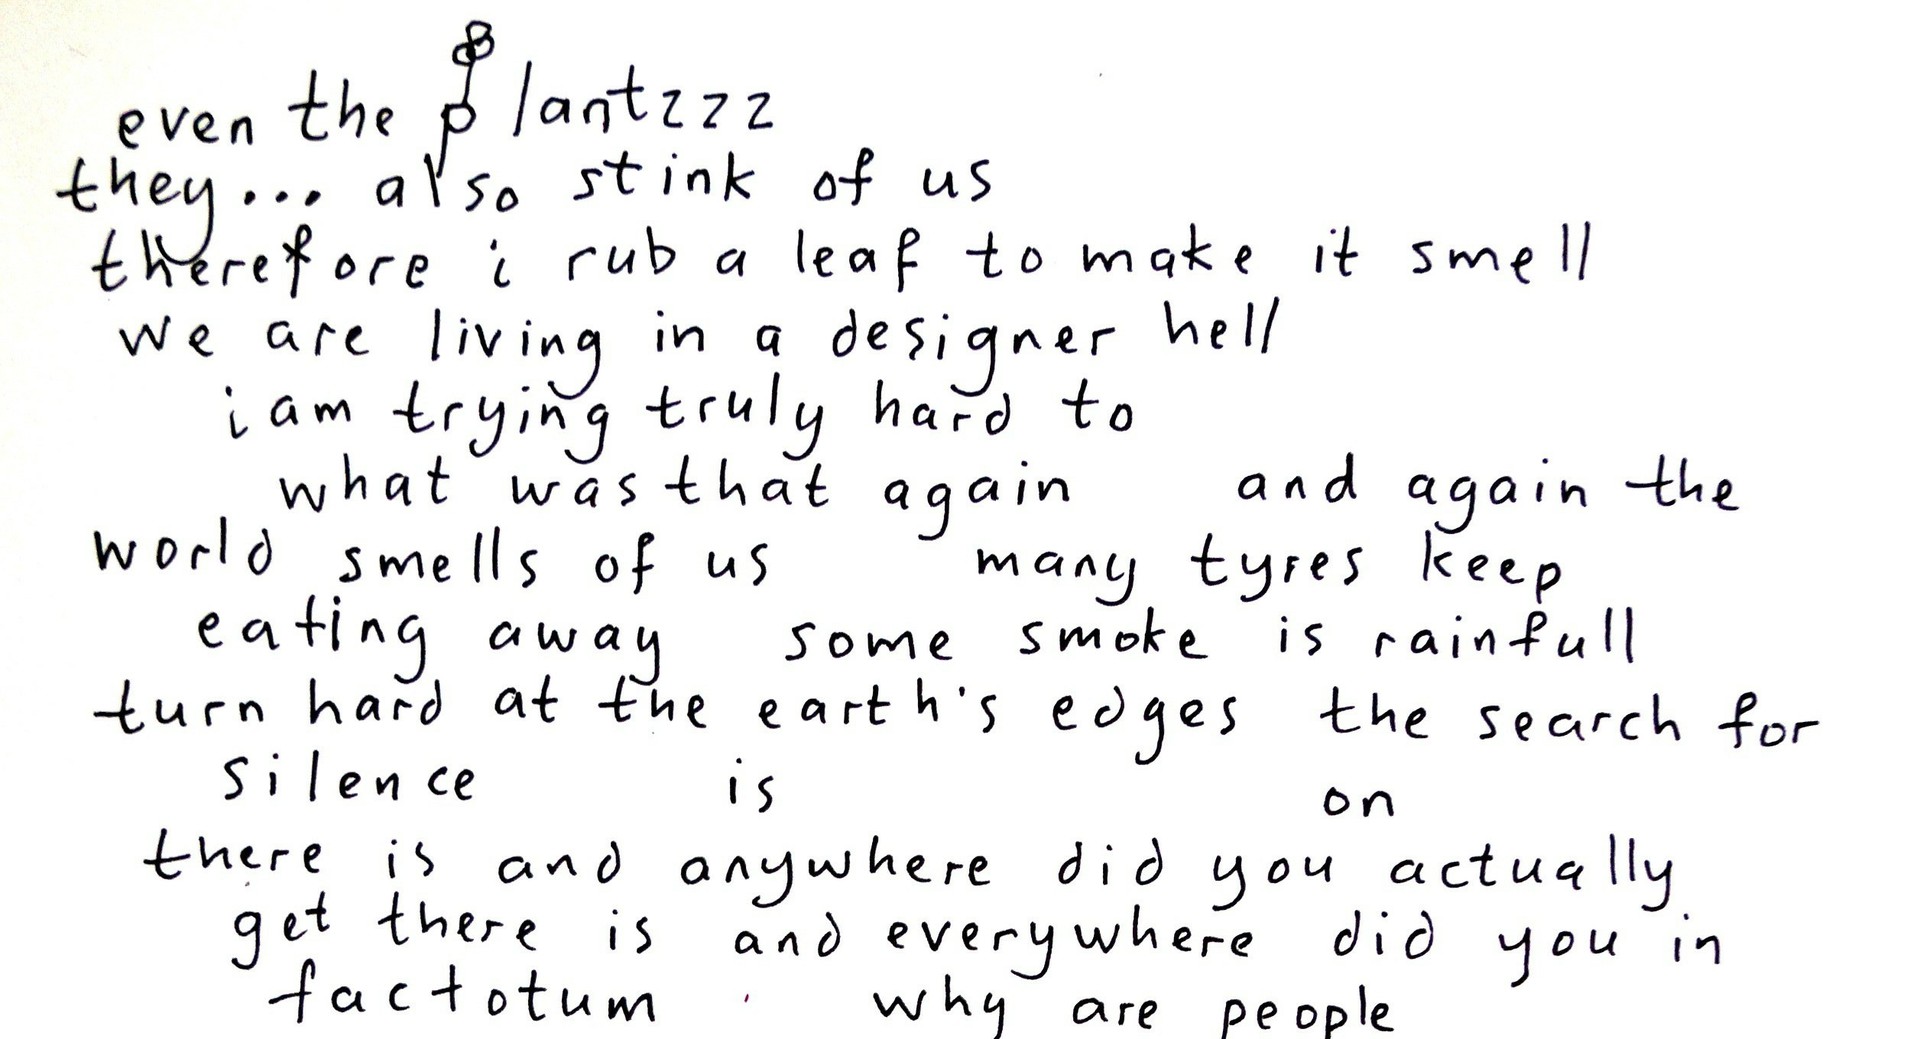 even the plantzzz
they... also stink of us
therefore i rub a leaf to make it smell
we are living in a designer hell
i am trying truly hard to
what was that again and again the
world smells of us many tyres keep
eating away some smoke is rainfull
turn hard at the earth's edges the search for
silence is on
there is and anywhere did you actually
get there is and everywhere did you in
factotum why are people